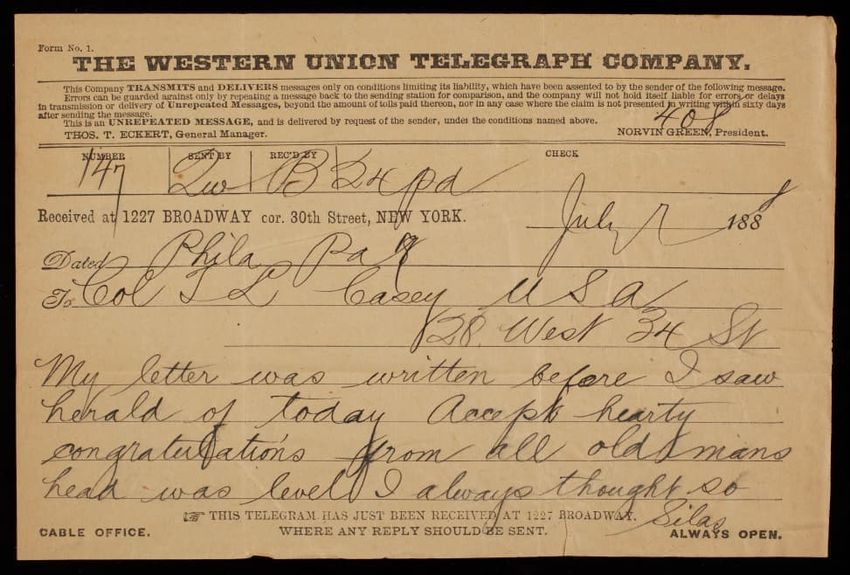 Form No. 1.
THE WESTERN UNION TELEGRAPH COMPANY.
This Company TRANSMITS and DELIVERS messages only on conditions limiting its liability, which have been assented to by the sender of the following message.
Errors can be guarded against only by repeating a message back to the sending station for comparison, and the company will not hold itself liable for errors or delays
in transmission or delivery of Unrepeated Messages, beyond the amount of tolls paid thereon, nor in any case where the claim is not presented in writing within sixty days
after sending the message.
This is an UNREPEATED MESSAGE, and is delivered by request of the sender, under the conditions named above.
408
THOS. T. ECKERT, General Manager. NORVIN GREEN, President.
NUMBER SENT BY REC'D BY CHECK
147 B 24 pd
Received at 1227 BROADWAY cor. 30th Street, NEW YORK. July 7 1888
Dated Phila Pa
To Col T L Casey U S A
128 West 34 St
My letter was written before I saw
herald of today Accept hearty
congratulations from all old mans
head was level I always thought so
Silas
☞ THIS TELEGRAM HAS JUST BEEN RECEIVED AT 1227 BROADWAY.
CABLE OFFICE. WHERE ANY REPLY SHOULD BE SENT. ALWAYS OPEN.